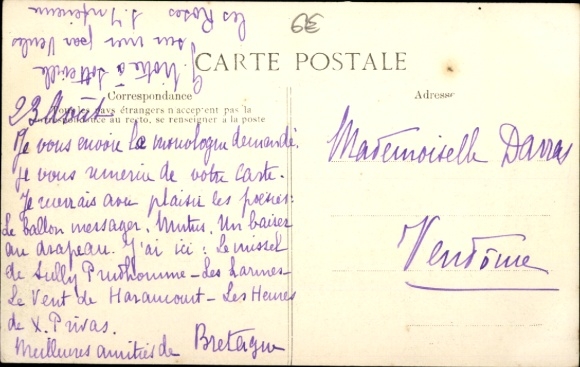 39
CARTE POSTALE
Correspondance
Tous les pays étrangers n'acceptent pas la
correspondance au recto, se renseigner à la poste
Adresse
23 Août
Je vous envoie le monologue demandé.
Je vous remercie de votre carte.
Je recevrais avec plaisir les poésies:
Le ballon messager. Mutus. Un baiser
au drapeau. J'ai ici : Le missel
de Sully Prudhomme - Les Larmes
Le Vent de Haraucourt - Les Heures
de X. Privas.
Meilleures amitiés de Bretagne
G. Notre à Sotteville
sur mer par Veules
les Roses
S. Inférieure
Mademoiselle Darras
Vendôme